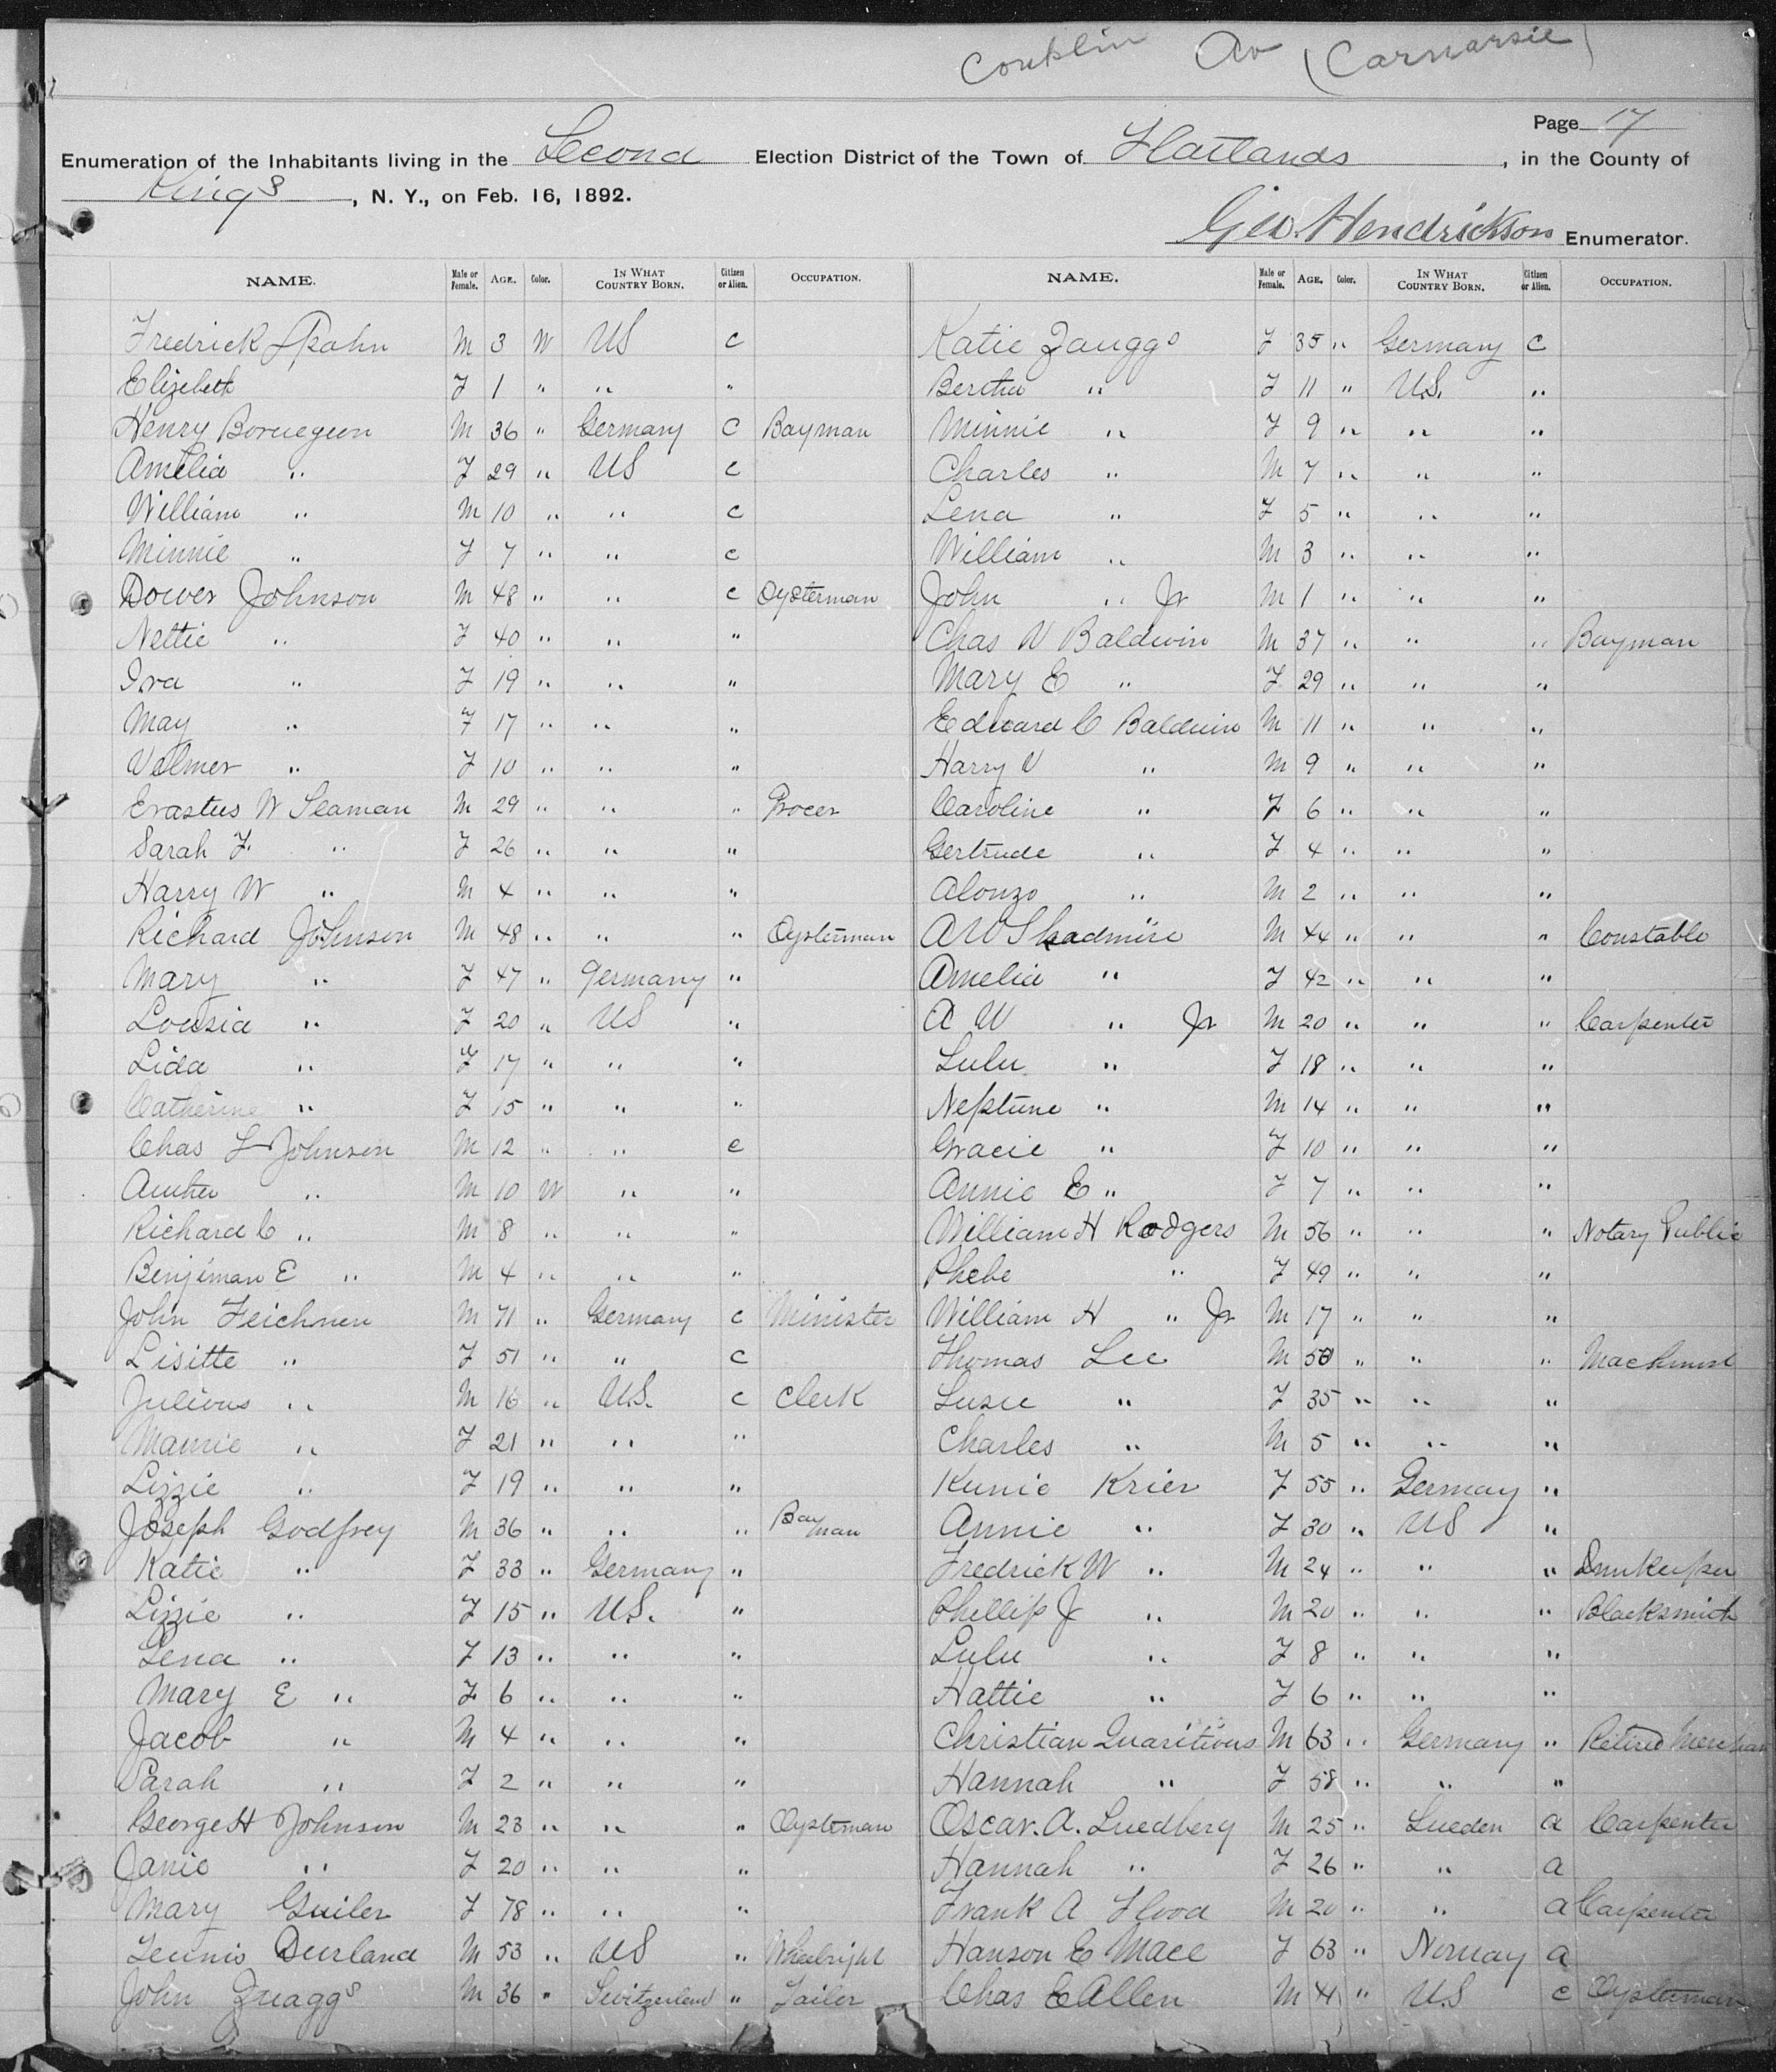 Conklin Av (Carnarsie)
Page 17
Enumeration of the Inhabitants living in the Second Election District of the Town of Flatlands, in the County of
Kings, N. Y., on Feb. 16, 1892.
Geo. Hendrickson Enumerator.
NAME. Male or Female. AGE. Color. IN WHAT COUNTRY BORN. Citizen or Alien. OCCUPATION.
Fredrick Spahn M 3 W US c
Elizebeth F 1 " " "
Henry Bornegun M 36 " Germany C Bayman
Amelia " F 29 " US c
William " M 10 " " c
Minnie " F 7 " " c
Dower Johnson M 48 " " c Oysterman
Nettie " F 40 " " "
Iva " F 19 " " "
May " F 17 " " "
Velmer " F 10 " " "
Erastus W Seaman M 29 " " " Grocer
Sarah F. " F 26 " " "
Harry W " M 4 " " "
Richard Johnson M 48 " " " Oysterman
Mary " F 47 " Germany "
Lousia " F 20 " US "
Lida " F 17 " " "
Catherine " F 15 " " "
Chas L Johnson M 12 " " c
Author " M 10 W " "
Richard C " M 8 " " "
Benjiman E " M 4 " " "
John Feichnen M 71 " Germany c Minister
Lisitte " F 51 " " c
Julious " M 16 " U.S. c Clerk
Mamie " F 21 " " "
Lizzie " F 19 " " "
Joseph Godfrey M 36 " " " Bayman
Katie " F 33 " Germany "
Lizzie " F 15 " U.S. "
Lena " F 13 " " "
Mary E " F 6 " " "
Jacob " M 4 " " "
Sarah " F 2 " " "
George H Johnson M 23 " " " Oysterman
Janie " F 20 " " "
Mary Guiler F 78 " " "
Teunis Durland M 53 " US " Wheelright
John Zuaggs M 36 " Switzerlend " Tailer
NAME. Male or Female. AGE. Color. IN WHAT COUNTRY BORN. Citizen or Alien. OCCUPATION.
Katie Zauggs F 35 " Germany C
Bertha " F 11 " U.S. "
Minnie " F 9 " " "
Charles " M 7 " " "
Lena " F 5 " " "
William " M 3 " " "
John " Jr M 1 " " "
Chas V Baldwin M 37 " " " Bayman
Mary E " F 29 " " "
Edward C Baldwin M 11 " " "
Harry V " M 9 " " "
Caroline " F 6 " " "
Gertrude " F 4 " " "
Alonzo " M 2 " " "
A W Skadmire M 44 " " " Constable
Amelia " F 42 " " "
A W " Jr M 20 " " " Carpenter
Lulu " F 18 " " "
Neptune " M 14 " " "
Gracie " F 10 " " "
Annie E " F 7 " " "
William H Rodgers M 56 " " " Notary Public
Phebe " F 49 " " "
William H " Jr M 17 " " "
Thomas Lee M 50 " " " Machinist
Susie " F 35 " " "
Charles " M 5 " " "
Kunie Krier F 55 " Germay "
Annie " F 30 " US "
Fredrick W " M 24 " " "
Phellip J " M 20 " " " Blacksmith
Lulu " F 8 " " "
Hattie " F 6 " " "
Christian Quaritious M 63 " Germany " Retired Merchan
Hannah " F 58 " " "
Oscar. A. Luedberg M 25 " Sueden a Carpenter
Hannah " F 26 " " a
Frank A Flood M 20 " " a Carpenter
Hanson E Mace F 63 " Norway a
Chas E Allen M 41 " U.S c Oysterman